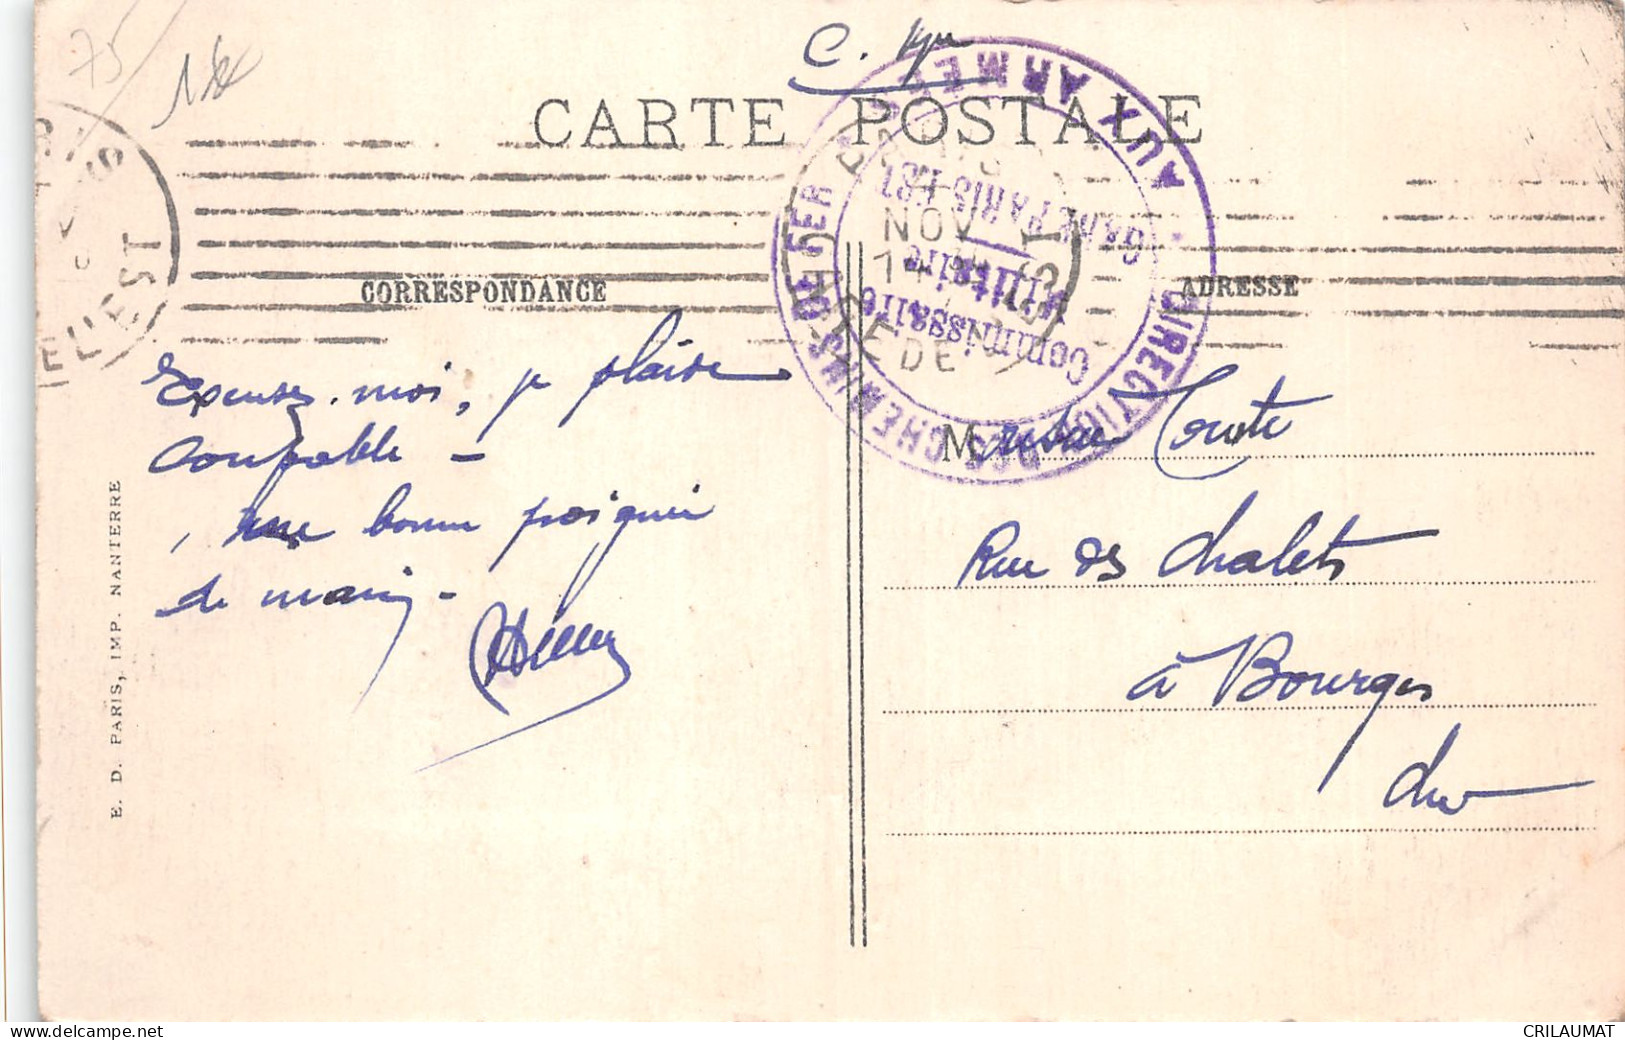 75
C.
CARTE POSTALE
DIRECTION DES CHEMINS DE FER AUX ARMÉES
GARE PARIS EST
Commissaire
Militaire
NOV
DE
EST
CORRESPONDANCE
ADRESSE
Excusez-moi, je plaide
coupable –
une bonne poignée
de main –
M
Rue des Chalets
à Bourges
Cher
E. D. PARIS, IMP. NANTERRE
CRILAUMAT